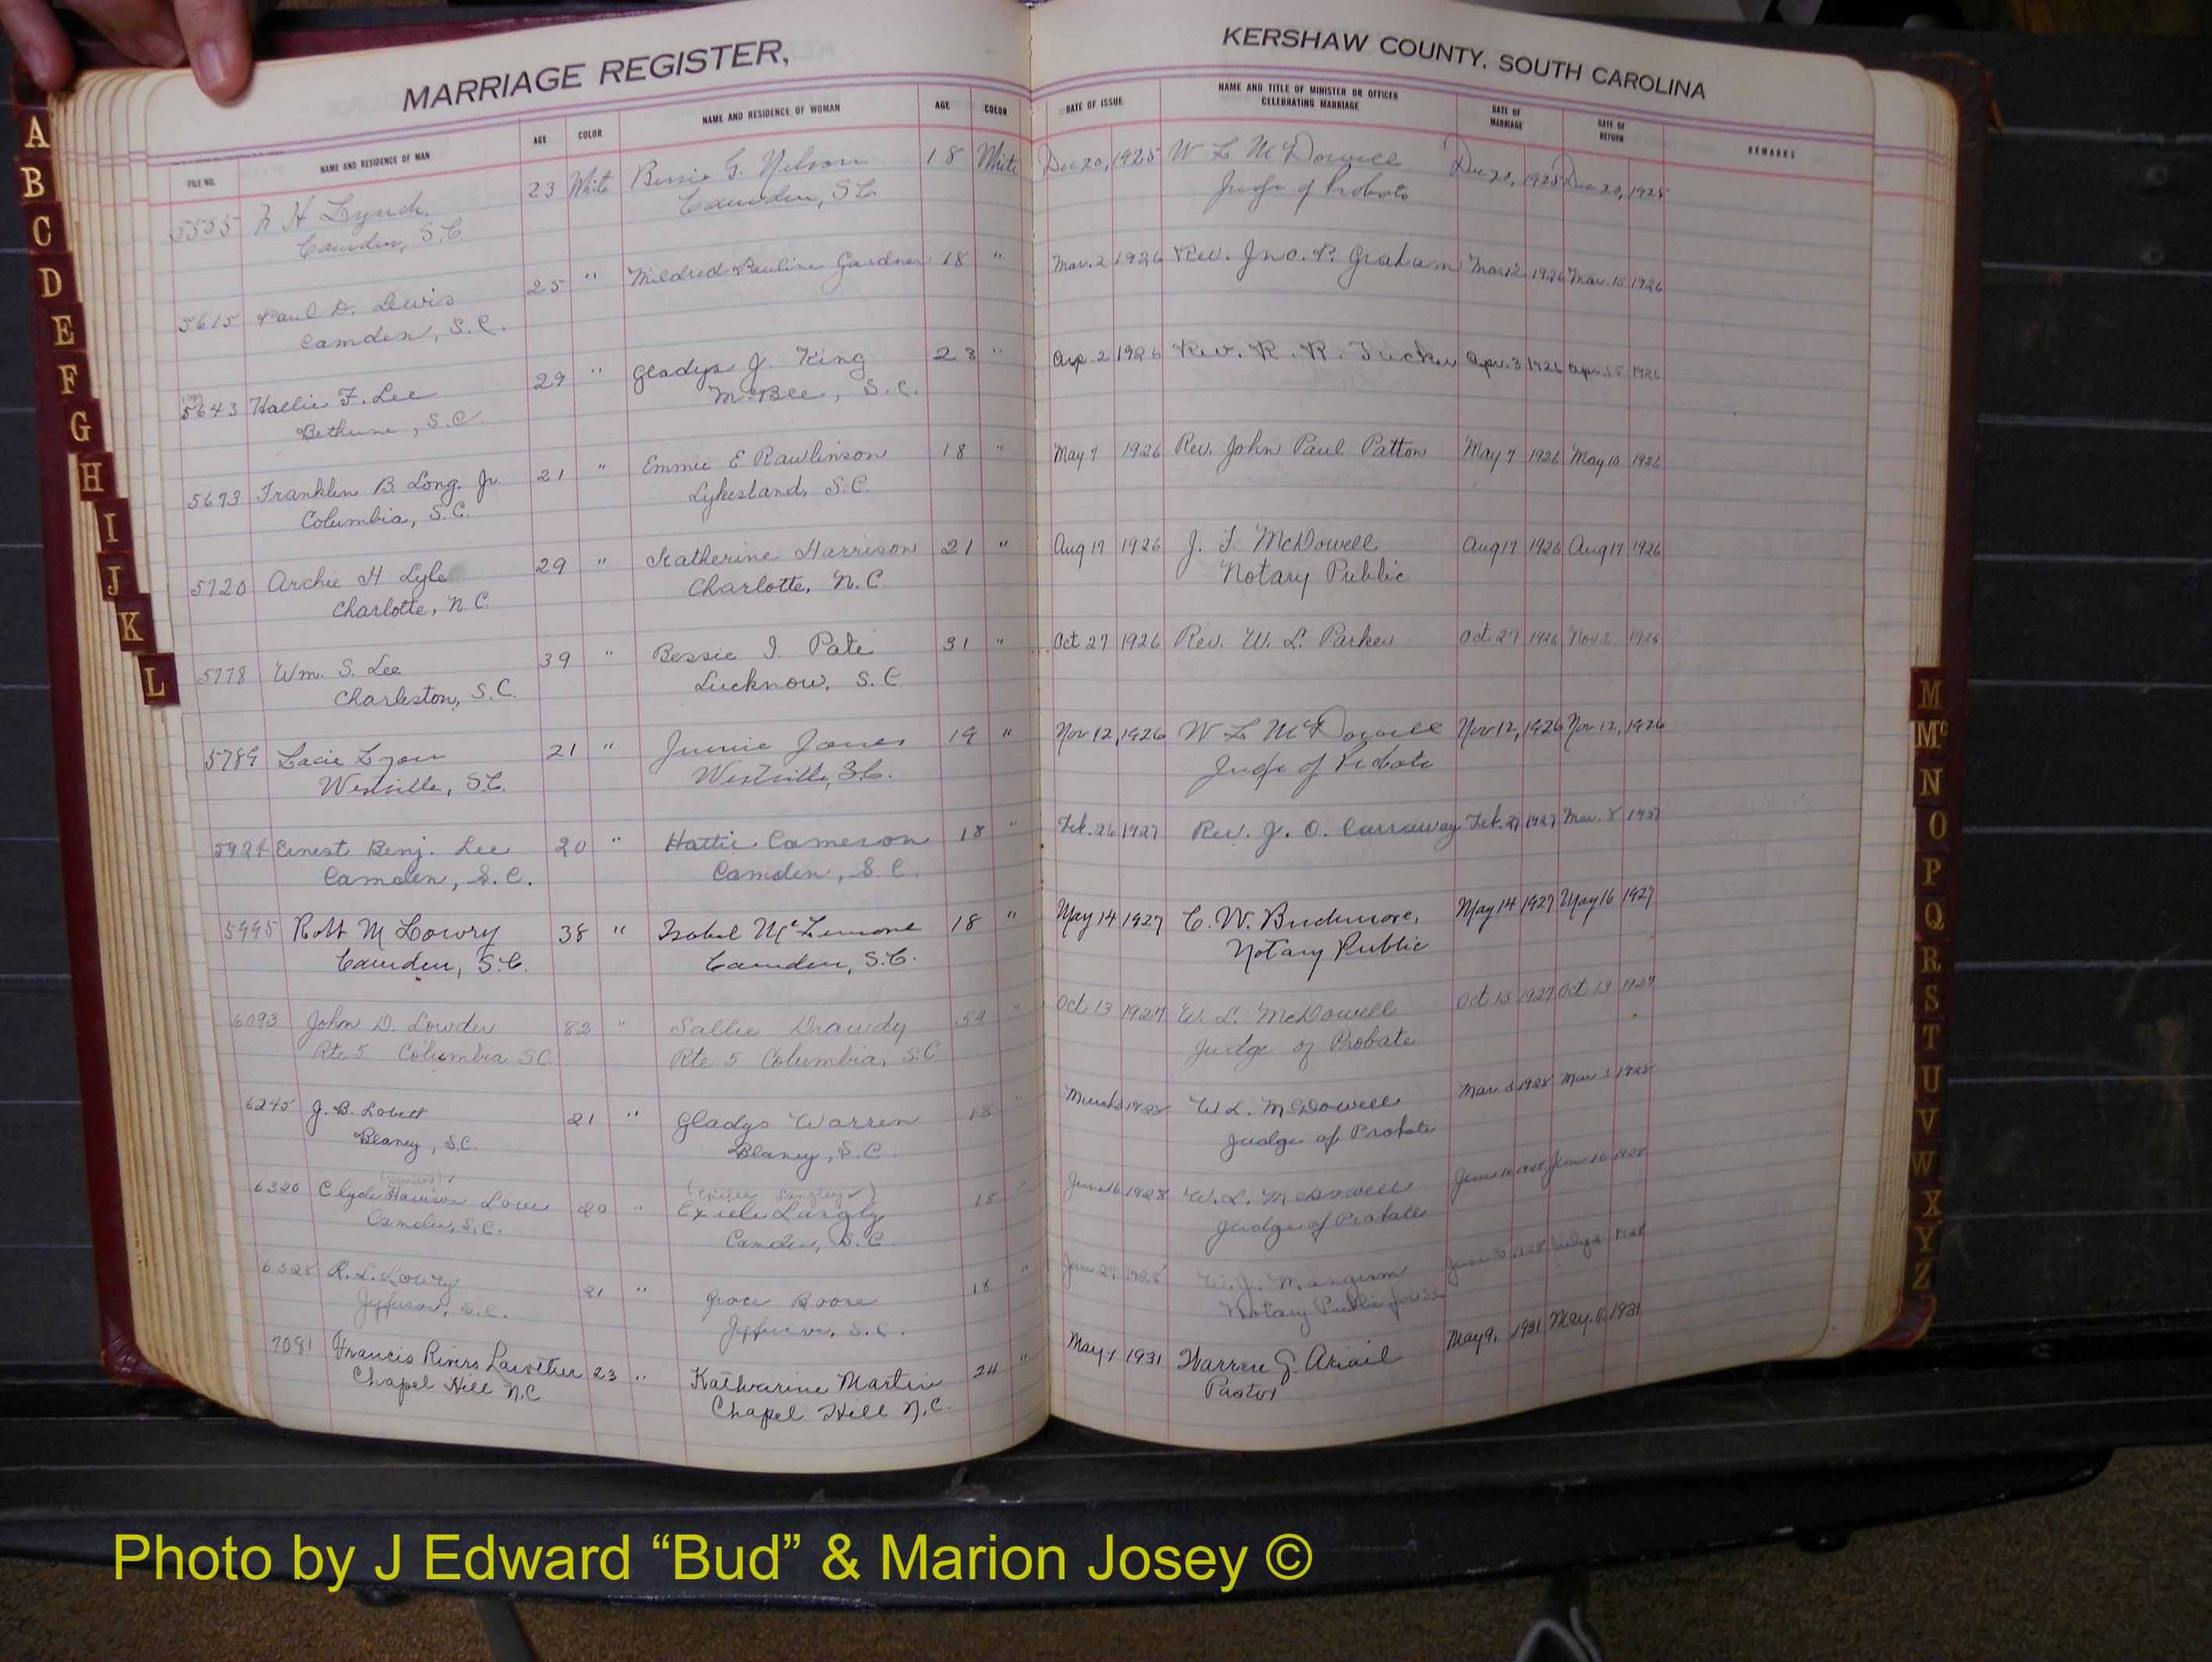 MARRIAGE REGISTER, KERSHAW COUNTY, SOUTH CAROLINA
FILE NO. NAME AND RESIDENCE OF MAN AGE COLOR NAME AND RESIDENCE OF WOMAN AGE COLOR DATE OF ISSUE NAME AND TITLE OF MINISTER OR OFFICER CELEBRATING MARRIAGE DATE OF MARRIAGE DATE OF RETURN REMARKS
H Lynch 23 White Bessie G. Nelson 18 White Dec 20, 1925 W L McDowell Dec 20, 1925 Dec 20, 1925
Camden, S.C. Camden, SC Judge of Probate
5615 Paul D. Lewis 25 " Mildred Pauline Gardner 18 " Mar. 2 1926 Rev. Jno. P. Graham 1926 Mar. 15 1926
Camden, S.C.
5643 Hallie F. Lee 29 " Gladys J. King 23 " Apr. 2 1926 Rev. R. R. Tucker Apr. 3 1926 Apr. 15 1926
Bethune, S.C. McBee, S.C.
5673 Franklin B. Long. Jr 21 " Emmie E Rawlinson 18 " May 7 1926 Rev. John Paul Patton May 7 1926 May 10 1926
Columbia, S.C. Lykesland, S.C.
5720 Archie H Lyle 29 " Katherine Harrison 21 " Aug 17 1926 J. F. McDowell Aug 17 1926 Aug 17 1926
Charlotte, N.C. Charlotte, N.C. Notary Public
5778 Wm. S. Lee 39 " Bessie I. Pate 31 " Oct 27 1926 Rev. W. L. Parker Oct 27 1926 Nov 2 1926
Charleston, S.C. Lucknow, S.C.
5789 Lacie Lyon 21 " Junie Jones 19 " Nov 12, 1926 W L McDowell Nov 12, 1926 Nov 12, 1926
Westville, S.C. Westville, S.C. Judge of Probate
5924 Ernest Benj. Lee 20 " Hattie Cameron 18 " Feb. 26 1927 Rev. J. O. Carraway Feb. 27 1927 Mar. 8 1927
Camden, S.C. Camden, S.C.
5995 Robt M Lowry 38 " Isabel McLemore 18 " May 14 1927 C. W. Birchmore, May 14 1927 May 16 1927
Camden, S.C. Camden, S.C. Notary Public
6093 John D. Lowder 82 " Sallie Drawdy 54 " Oct 13 1927 W. L. McDowell Oct 13 1927 Oct 13 1927
Rte 5 Columbia SC Rte 5 Columbia, S.C Judge of Probate
6245 J. B. Lovett 21 " Gladys Warren 18 " March 3 1928 W L. McDowell Mar. 3 1928 Mar 3 1928
Blaney, S.C. Blaney, S.C. Judge of Probate
6320 Clyde Harrison Love 20 " Langly 18 " June 16 1928 W. L. McDowell June 16 1928 June 16 1928
Camden, S.C. Camden, S.C. Judge of Probate
6328 R. L. Lowry 21 " Grace Boone 18 " June 29 1928 W. J. Mangum June 30 1928
Jefferson, S.C. Jefferson, S.C. Notary Public for S.C.
7081 Francis Rivers Lawther 23 " Katharine Martin 24 " May 7 1931 Warren G. Ariail May 9, 1931 May. 11, 1931
Chapel Hill N.C Chapel Hill N.C. Pastor
A
B
C
D
E
F
G
H
I
J
K
L
M
Mc
N
O
P
Q
R
S
T
U
V
W
X
Y
Z
Photo by J Edward “Bud” & Marion Josey ©